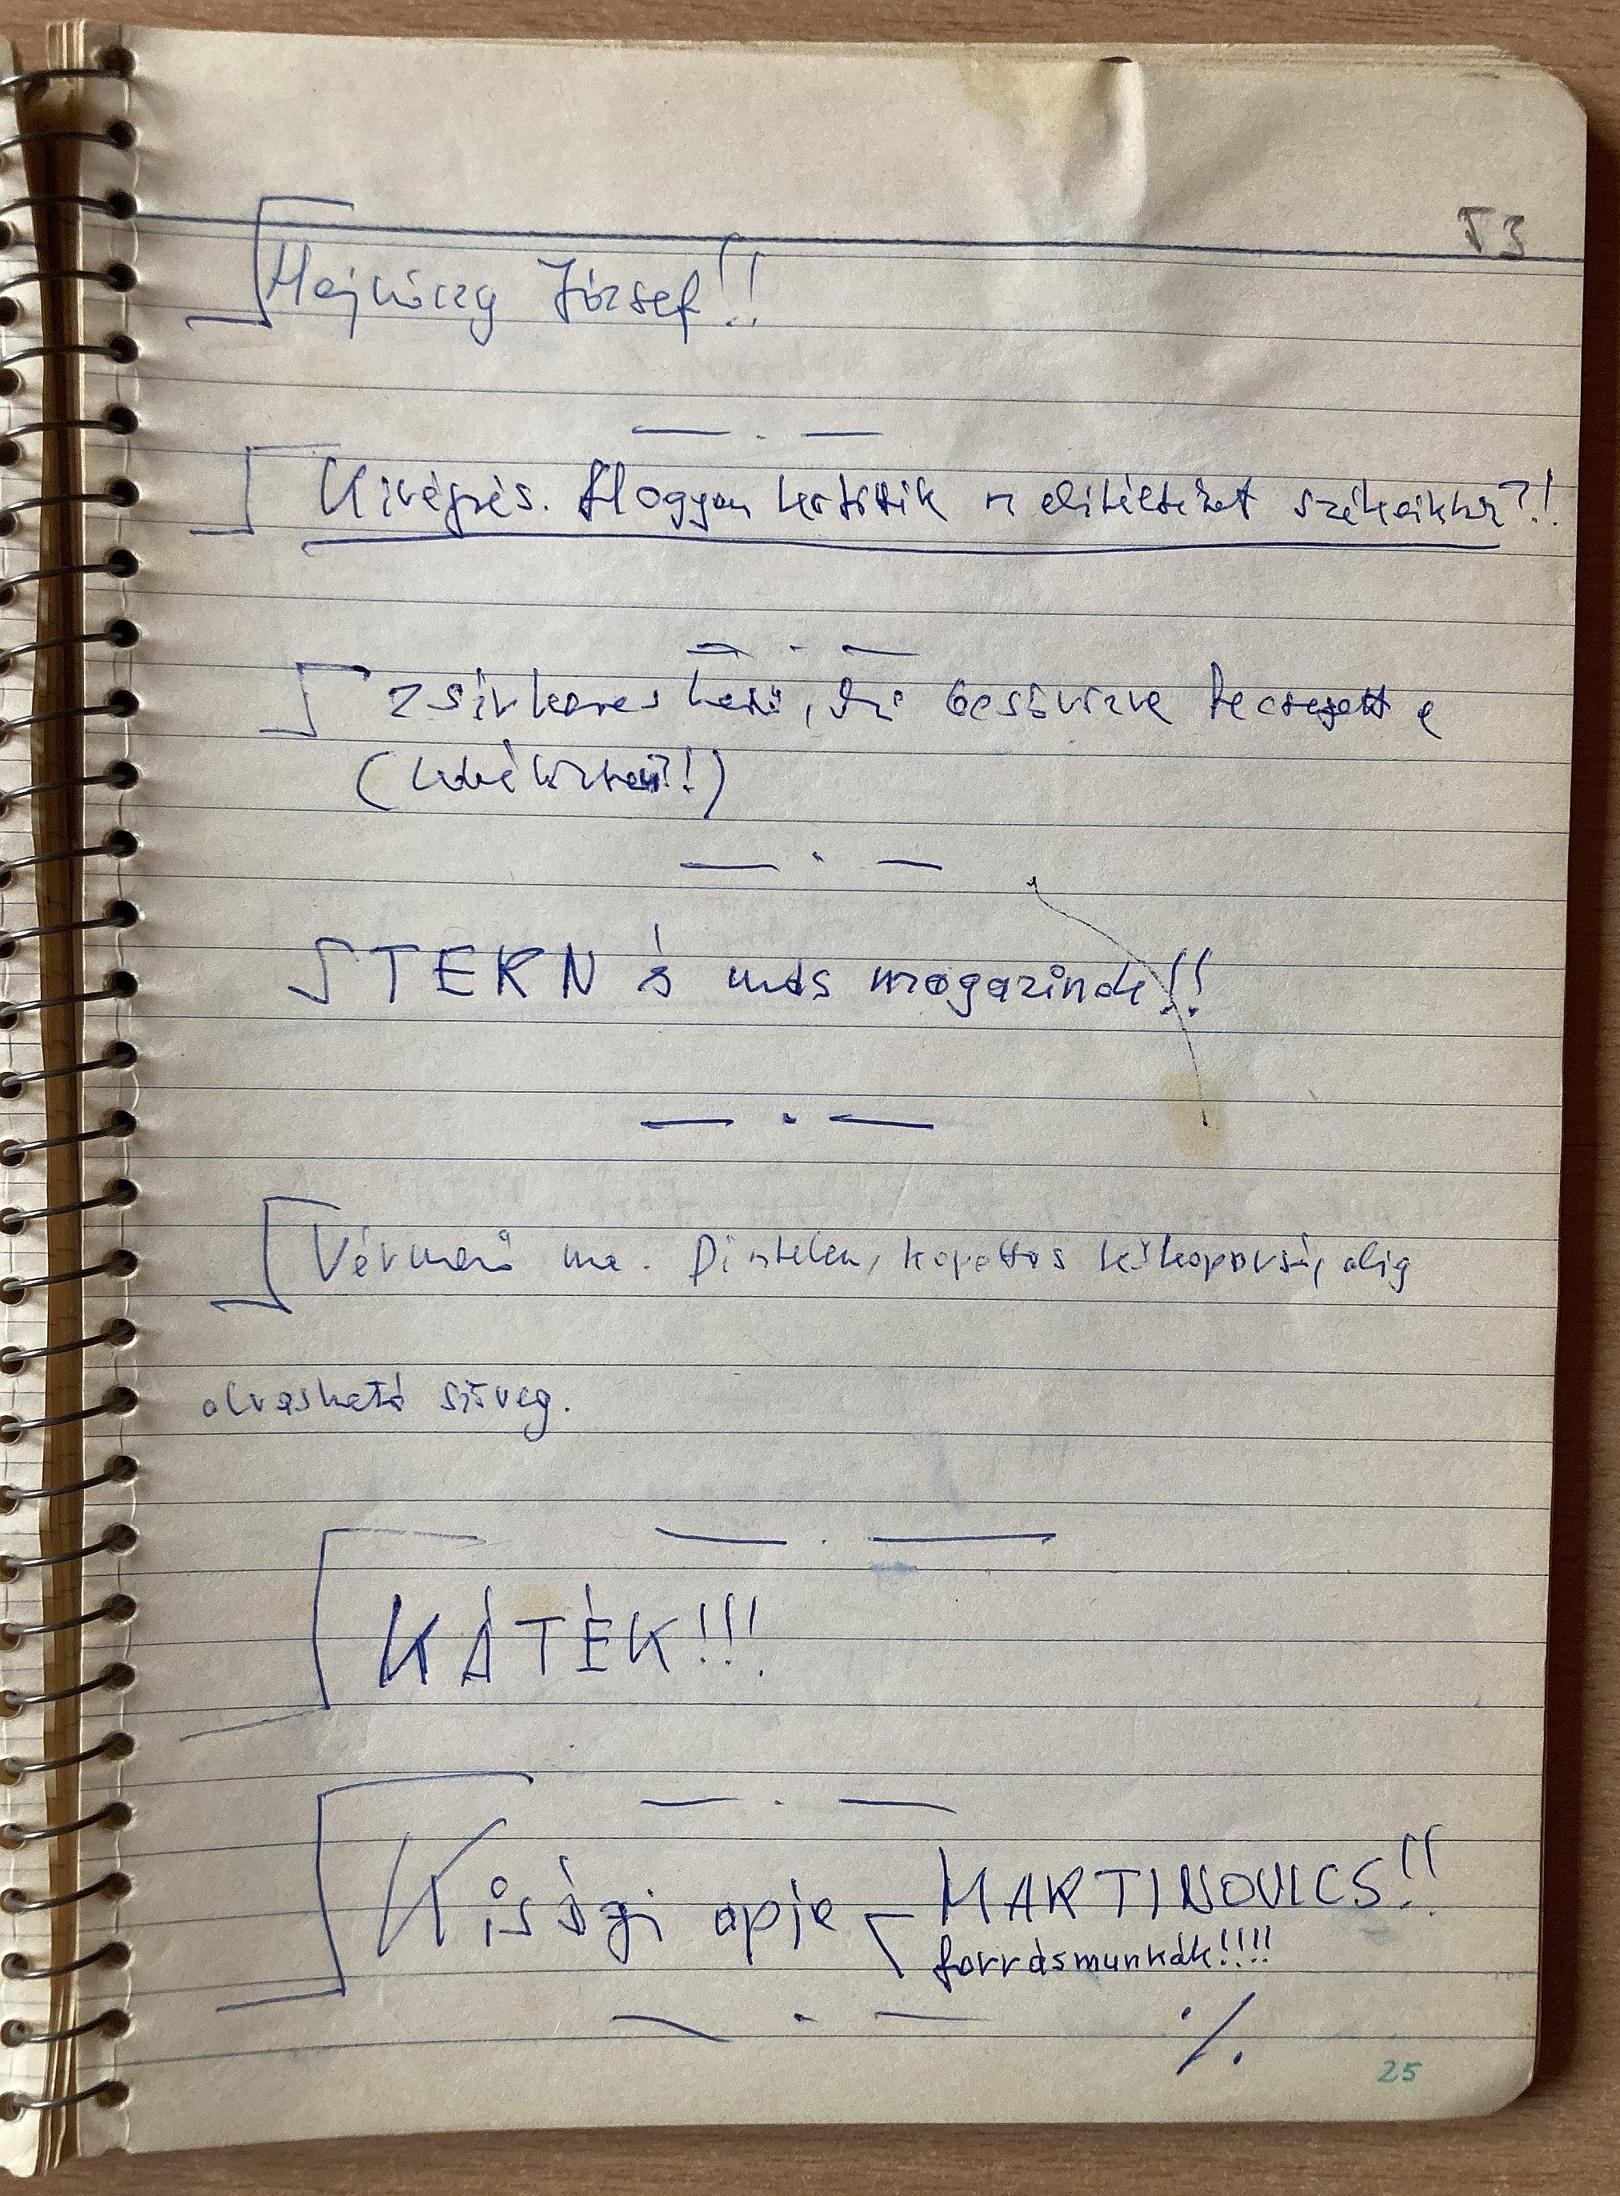 53
Hajnóczy József!!
Kivégzés. Hogyan kötötték az elítélteket székeikhez?!
Zsíros kenyér, besűrűzve
STERN és más magazinok!!
Vérmező ma. Dísztelen, kopottas kőkoporsó, alig
olvasható szöveg.
KÁTÉK!!!
Kisági apja MARTINOVICS!!
forrásmunkák!!!!
./.
25